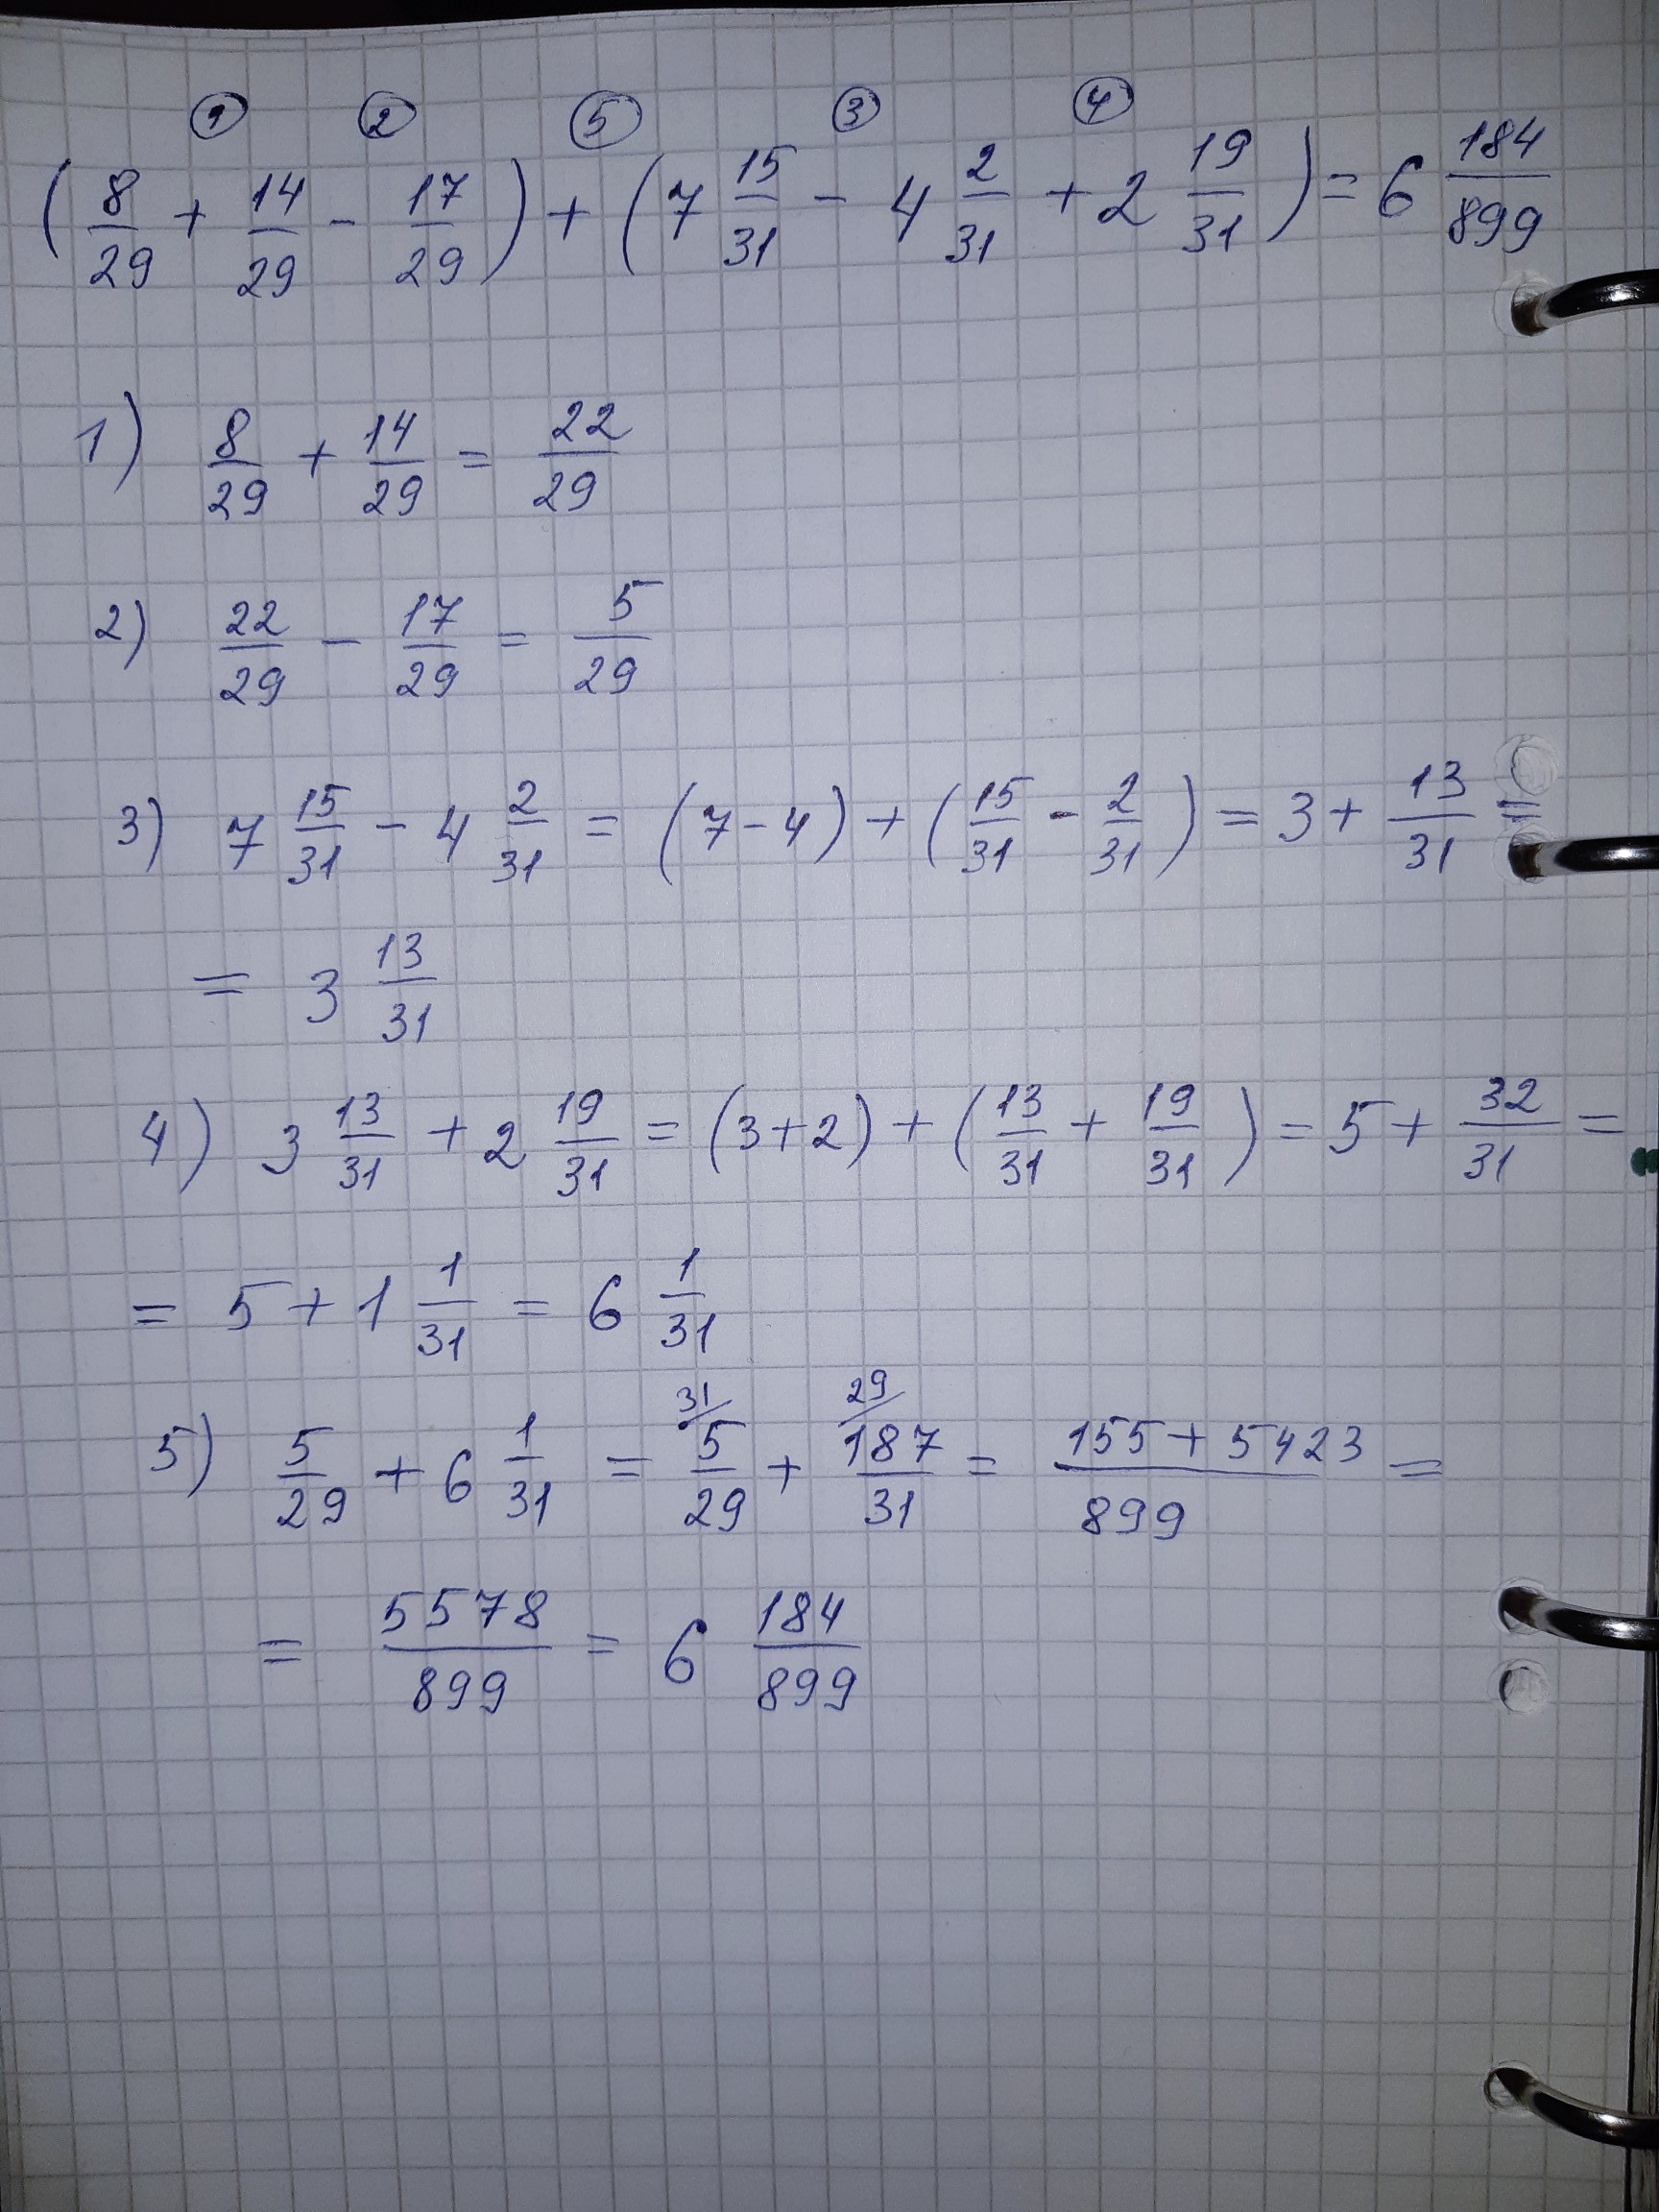 ① ② ⑤ ③ ④
(8/29 + 14/29 - 17/29) + (7 15/31 - 4 2/31 + 2 19/31) = 6 184/899
1) 8/29 + 14/29 = 22/29
2) 22/29 - 17/29 = 5/29
3) 7 15/31 - 4 2/31 = (7 - 4) + (15/31 - 2/31) = 3 + 13/31 =
= 3 13/31
4) 3 13/31 + 2 19/31 = (3 + 2) + (13/31 + 19/31) = 5 + 32/31 =
= 5 + 1 1/31 = 6 1/31
31/ 29/
5) 5/29 + 6 1/31 = 5/29 + 187/31 = (155 + 5423)/899 =
= 5578/899 = 6 184/899